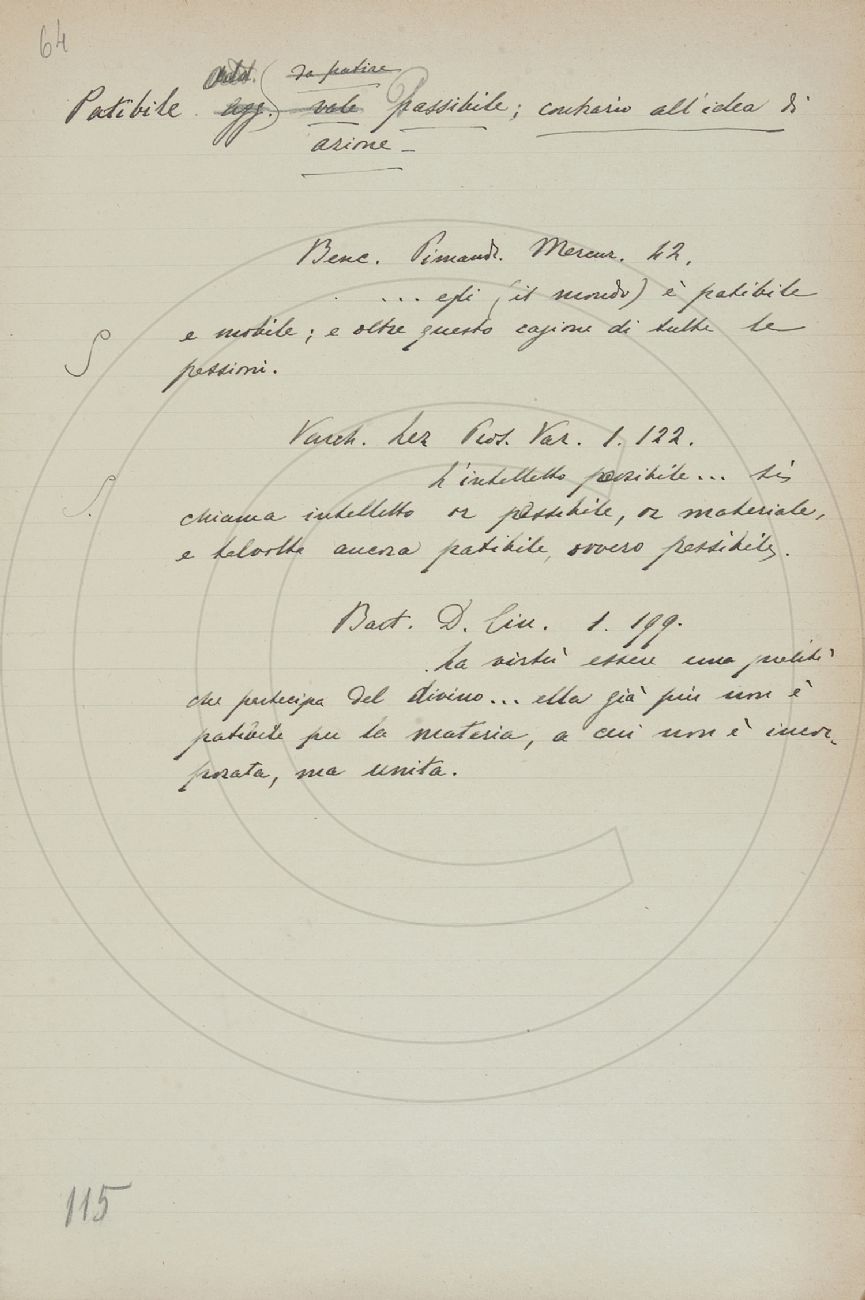 64
Add. da patire
Patibile agg. vale Passibile; contrario all'idea di
azione –
Benc. Pimandr. Mercur. 42.
... egli (il mondo) è patibile
e mobile; e oltre questo cagione di tutte le
passioni.
Varch. Lez. Pros. Var. 1. 122.
L'intelletto possibile... si
chiama intelletto or possibile, or materiale,
e talvolta ancora patibile, ovvero passibile.
Bart. D. 1. 199.
La virtù essere una qualità
che partecipa del divino... ella già più non è
patibile per la materia, a cui non è incor-
porata, ma unita.
115